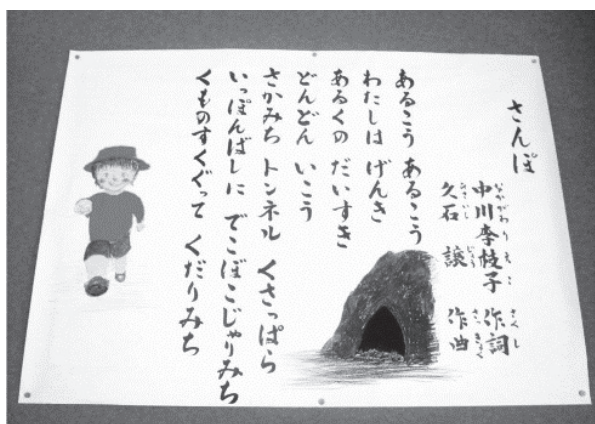 さんぽ
中川李枝子 作詞
なかがわりえこ さくし
久石 譲 作曲
ひさいし じょう さっきょく
あるこう あるこう
わたしは げんき
あるくの だいすき
どんどん いこう
さかみち トンネル くさっぱら
いっぽんばしに でこぼこじゃりみち
くものすくぐって くだりみち